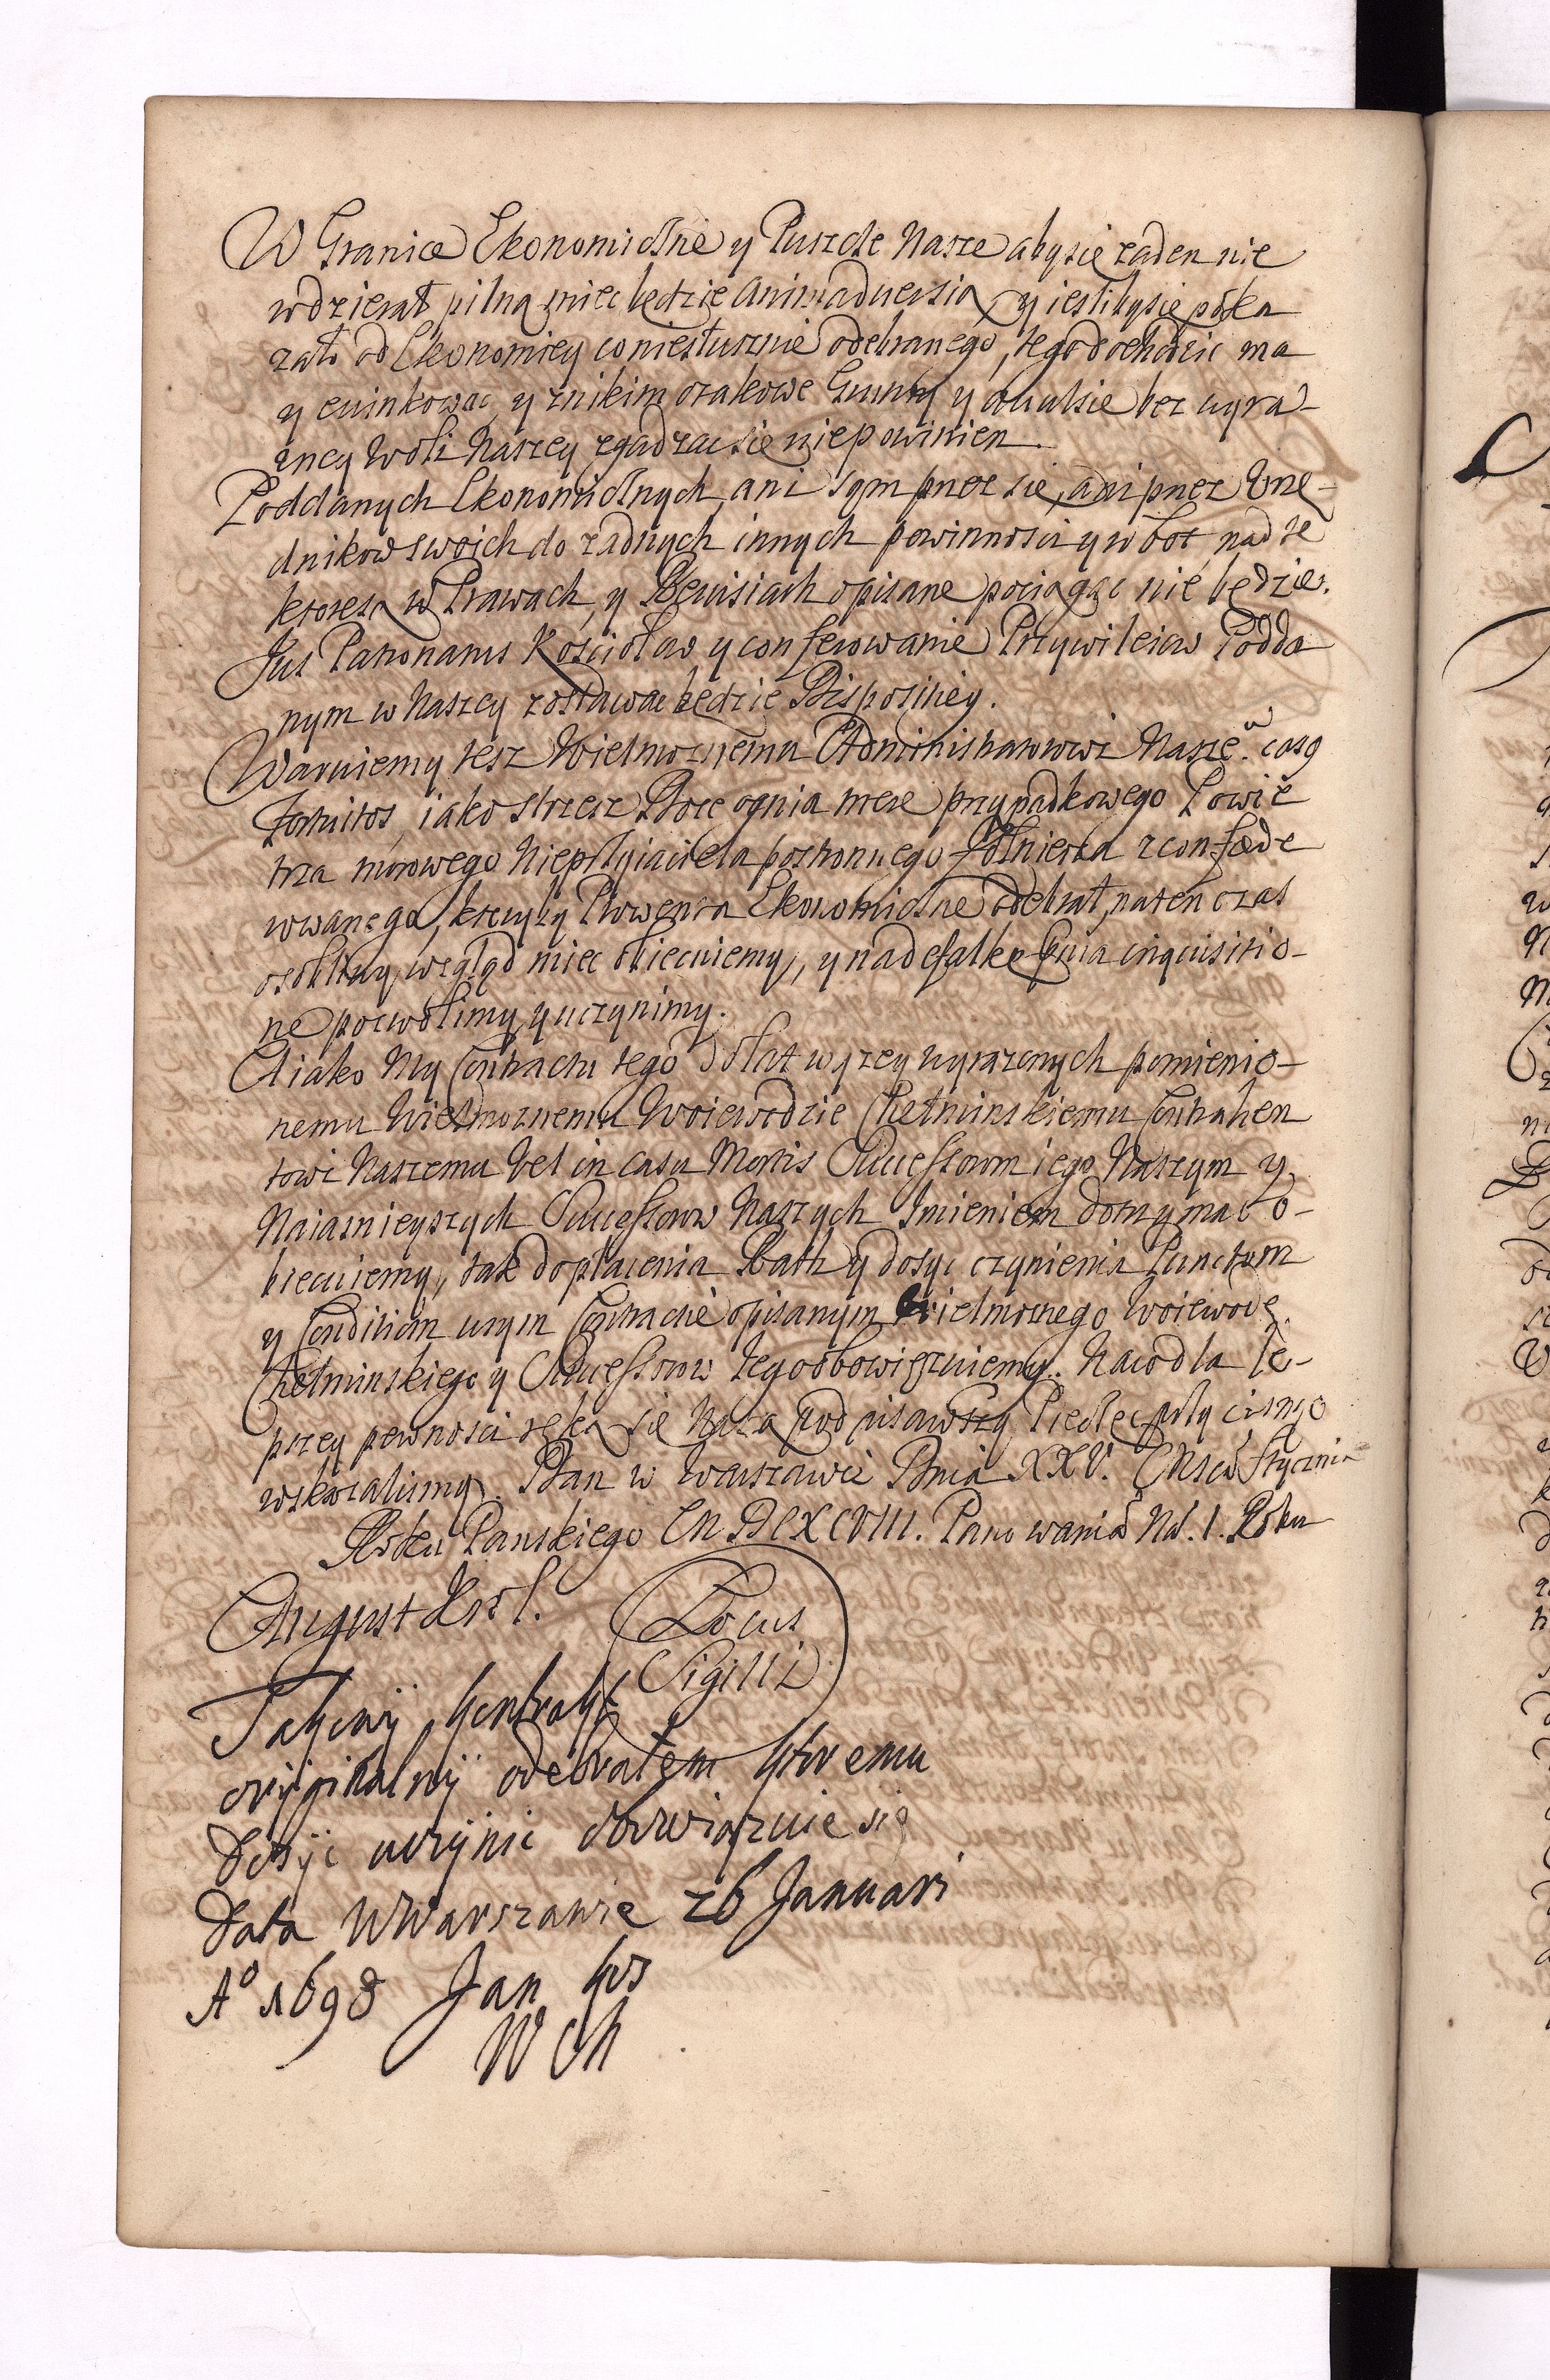 W Granice Ekonomiczne y Puszcze Nasze aby się żaden nie
wdzierał pilną miec będzie Animadwersią y iesliby się poka
zało od Ekonomiey co niesłusznie odebranego, tego dochodzic ma
y ewinkowac, y znikim o takowe Grunty y avulsie bez wyra-
zney Woli Naszey zgadzac sie niepowinien.
Poddanych Ekonomicznych, ani sąm przez się, ani przez Vrzę-
dnikow swoich do żadnych innych powinnosci y robot, nad te
ktore są w Prawach, y Rewisiach opisane pociągac nie będzie.
Jus Patronatus Kosciołow y conferowanie Przywileiow Podda
nym w Naszey zostawac będzie Dispositiey.
Waruiemy tesz Wielmoznemu Administratorowi Nasze:u casq
fortuitos, iako strzesz Boze ognia mere przypadkowego Powie
trza morowego Nieprzyiaciela postronnego Zołnierza zconfœde
rowanego, ktoryby Prowenta Ekonomiczne odebrał, naten czas
osobliwy wzgląd miec obiecuiemy, y na defalkę prævia inquisitio-
ne pozwolimy y uczynimy.
A iako My Contractu tego do lat wyzey wyrazonych pomienio-
nemu Wielmoznemu Woiewodzie Chełminskiemu Contrahen
towi Naszemu vel in casu Mortis Successorom iego Naszym y
Naiasnieyszych Successorow Naszych Imieniem dotrzymac o-
biecuiemy, tak do płacenia Rath y dosyc czynienia Punctom
y Conditiom wtym Contracie opisanym Wielmoznego Woiewodę
Chełminskiego y Successorow tego obowięzuiemy. Na co dla le-
pszey pewnosci ręką się Naszą podpisawszy Pieczęc przycisnąc
wskazalismy. Dan w Warszawie Dnia XXV. Msca Stycznia
Roku Panskiego MDCXCVIII. Panowania Nż. I. Roku
August Krol.
Locus
Sigilli
Takowÿ kontrakt
orÿginalnÿ odebrałem ktoremu
dosÿc uczÿnic obowiązuie się
Data W Warszawie 26 Januari
A° 1698 Jan Kos
W Ch